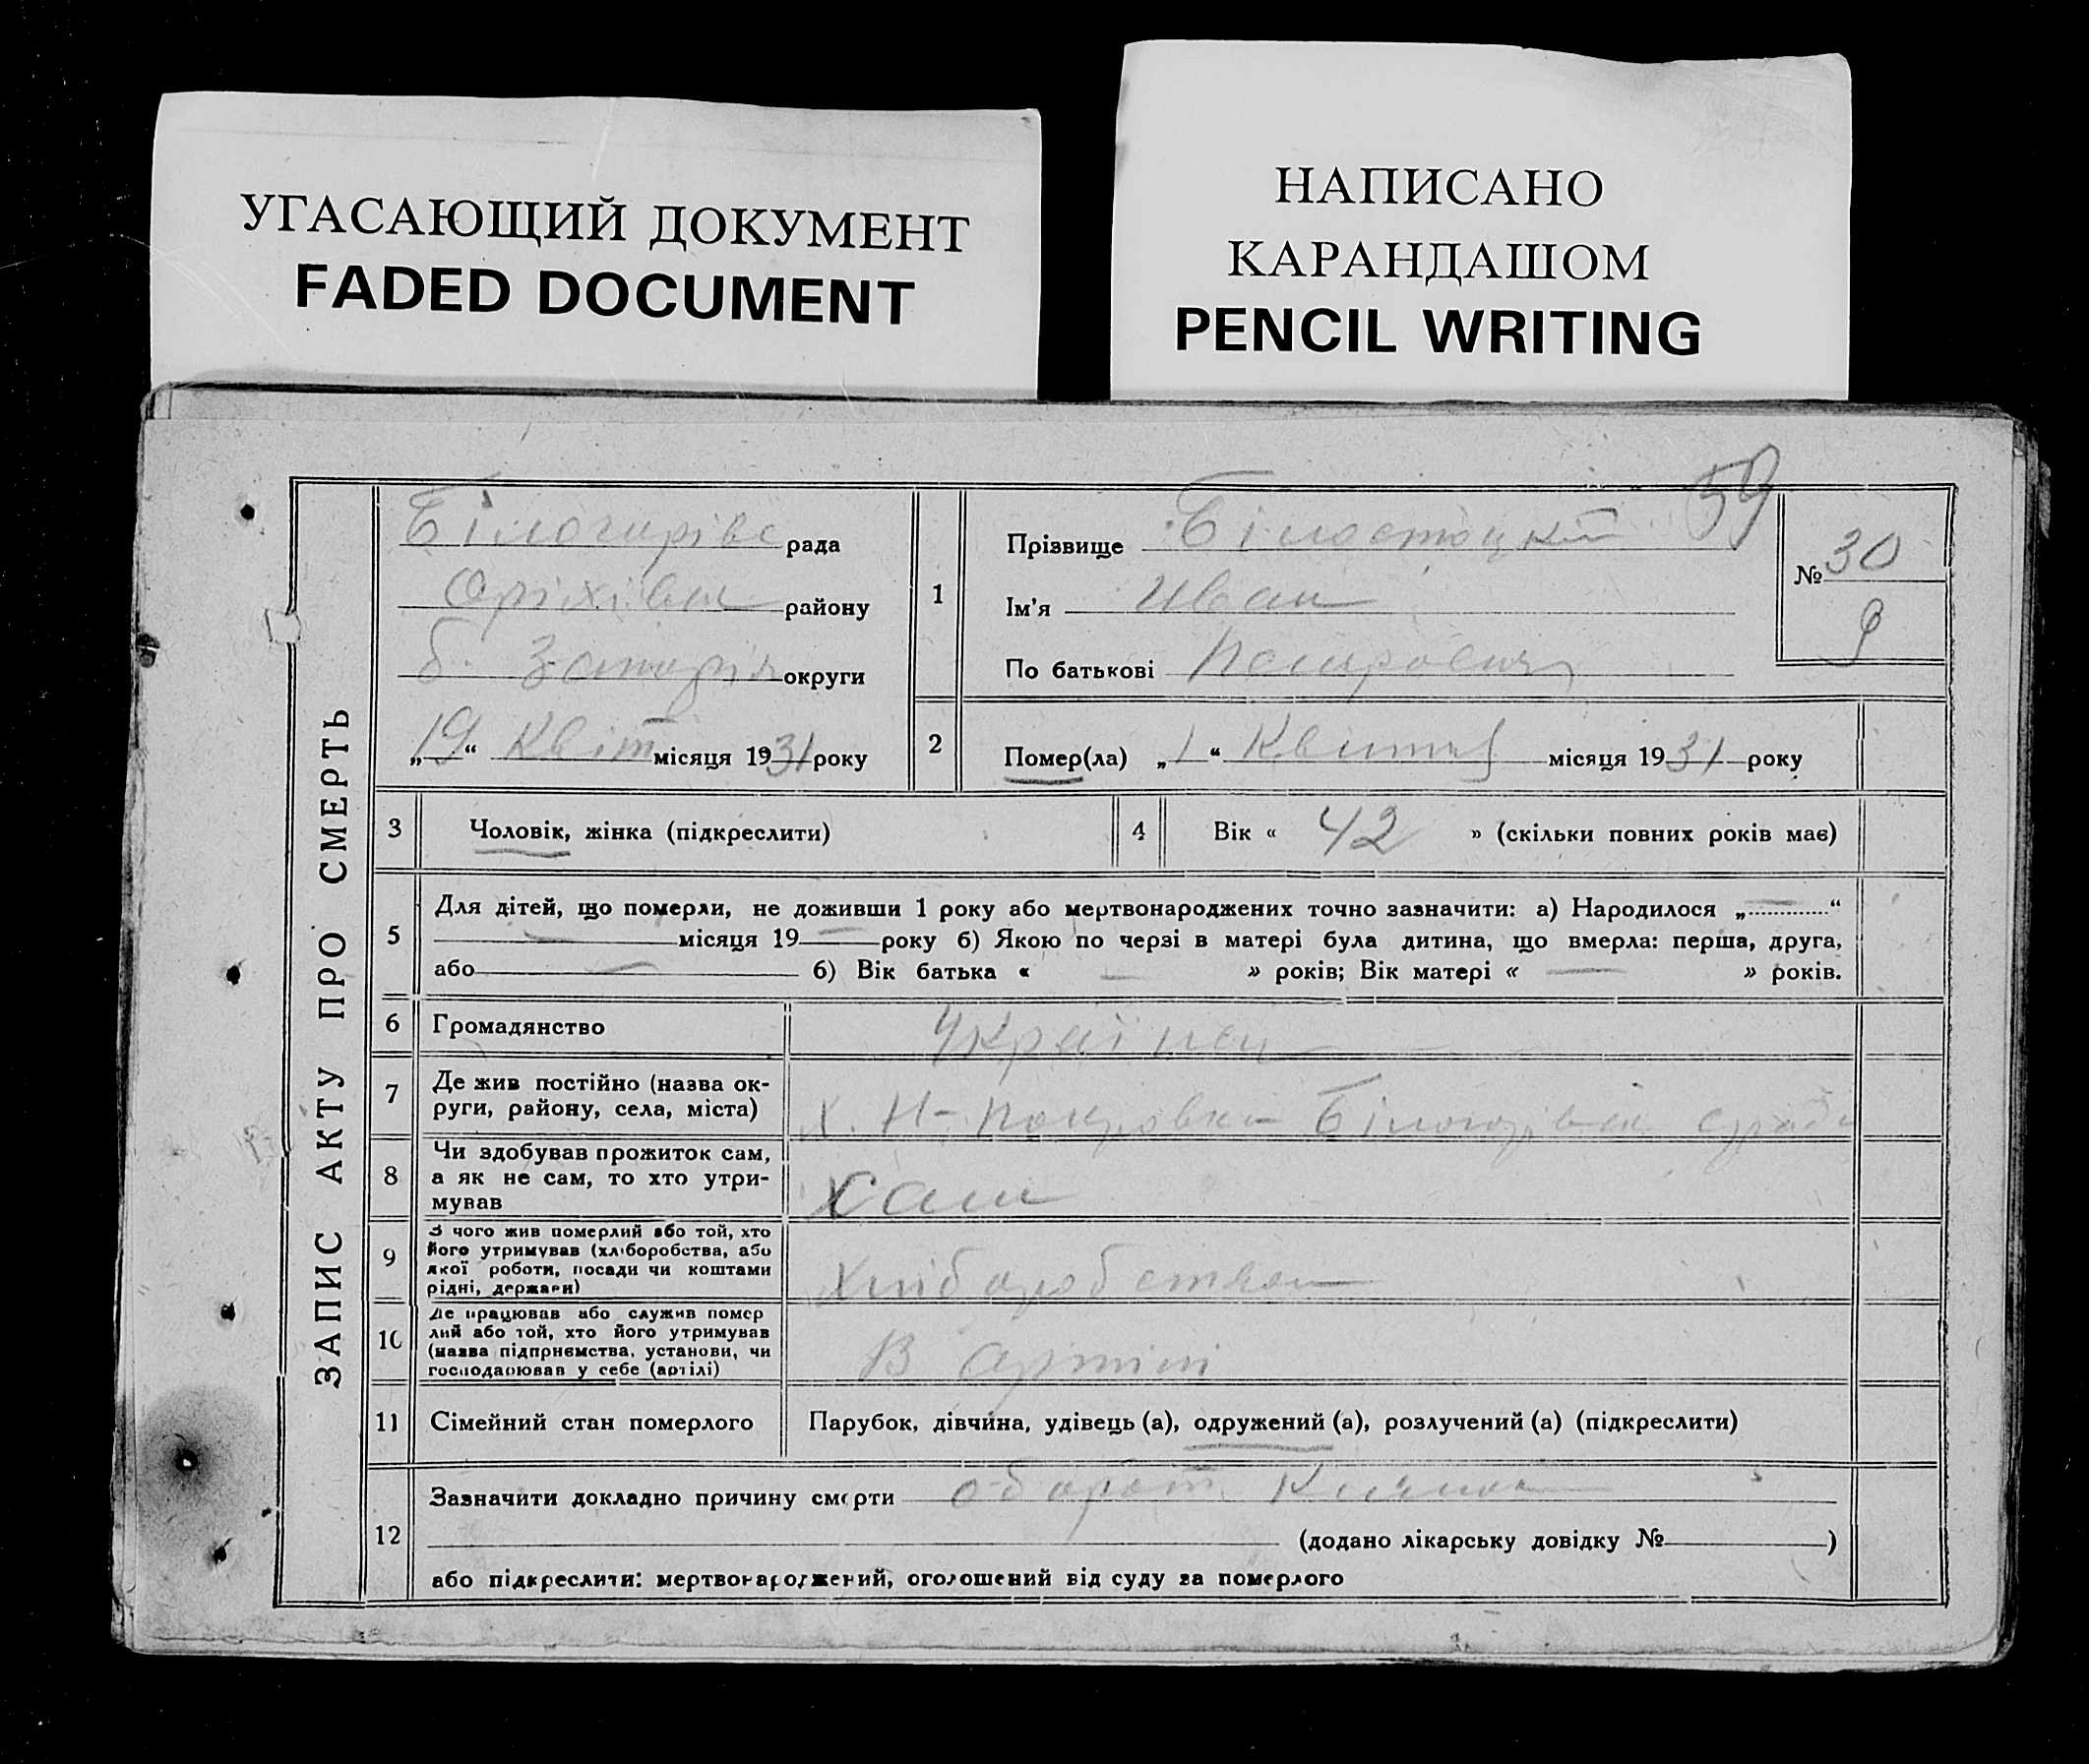 УГАСАЮЩИЙ ДОКУМЕНТ
FADED DOCUMENT
НАПИСАНО
КАРАНДАШОМ
PENCIL WRITING
ЗАПИС АКТУ ПРО СМЕРТЬ
59
Білогирівс рада
Оріхівськ району
б. Запоріз округи
„19“ Квіт місяця 1931 року
1
Прізвище Білостоцкій
Ім'я Иван
По батькові Петрович
№ 30
9
2
Помер(ла) „1“ Квітня місяця 1931 року
3
Чоловік, жінка (підкреслити)
4
Вік « 42 » (скільки повних років має)
5
Для дітей, що померли, не доживши 1 року або мертвонароджених точно зазначити: а) Народилося „ “
місяця 19 року б) Якою по черзі в матері була дитина, що вмерла: перша, друга,
або б) Вік батька « » років; Вік матері « » років.
6
Громадянство
Українец
7
Де жив постійно (назва ок-
руги, району, села, міста)
х. Н-Покровка Білогорівск. сради
8
Чи здобував прожиток сам,
а як не сам, то хто утри-
мував
Сам
9
З чого жив померлий або той, хто
його утримував (хліборобства, або
якої роботи, посади чи коштами
рідні, держави)
Хліборобством
10
Де працював або служив помер
лий або той, хто його утримував
(назва підприємства, установи, чи
господарював у себе (артілі)
В Артілі
11
Сімейний стан померлого
Парубок, дівчина, удівець (а), одружений (а), розлучений (а) (підкреслити)
12
Зазначити докладно причину смерти оборот
(додано лікарську довідку № )
або підкреслити: мертвонароджений, оголошений від суду за померлого